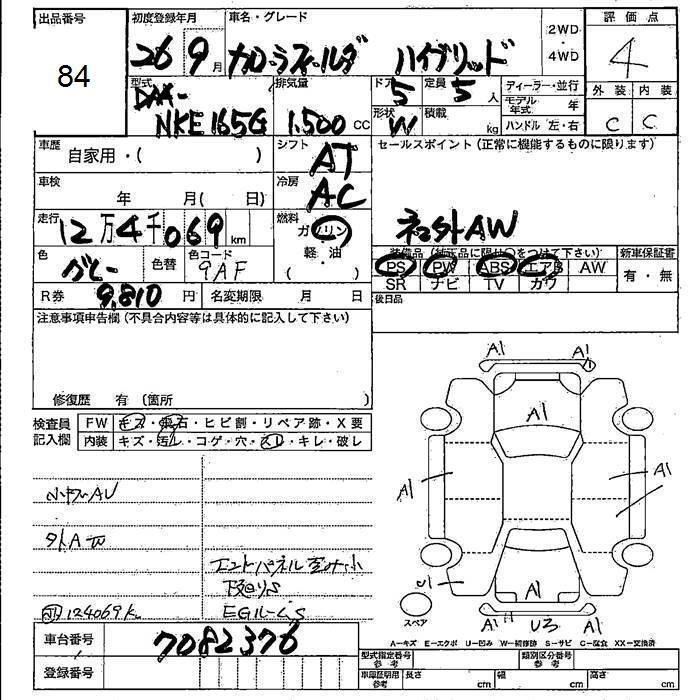 出品番号 初度登録年月 車名・グレード 2WD ・ 4WD 評価点
84 26 9月 カローラフィールダー ハイブリッド 4
型式 DAA- NKE165G 排気量 1.500 CC ドア 5 定員 5 人 ディーラー・並行 外装 内装
形状 W 積載 kg モデル年式 年 C C
ハンドル 左・右
車歴 自家用・( ) シフト AT セールスポイント(正常に機能するものに限ります)
車検 年 月( 日) 冷房 AC
走行 12万4千069 km 燃料 ガソリン 軽・油 ( ) 社外AW
色 グレー 色替 色コード 9AF 装備品(純正品に限り○をつけて下さい) 新車保証書
PS PW ABS エアB AW 有・無
SR ナビ TV カワ
R券 9,810 円 名変期限 月 日 後日品
注意事項申告欄(不具合内容等は具体的に記入して下さい)
修復歴 有(箇所 )
検査員記入欄 FW キズ・飛石・ヒビ割・リペア跡・X要
内装 キズ・汚レ・コゲ・穴・スレ・キレ・破レ
A1 A1
A1
A1 A1
小キズAU
外A
エンドパネル歪み小
下廻りS
124069km EGルームS
U1 A1
スペア A1 U3 A1
A-キズ E-エクボ U-凹み W-補修跡 S-サビ C-腐食 XX-交換済
車台番号 7082376
型式指定番号 参考 類別区分番号 参考
登録番号 車庫証明用 参考 長さ cm 幅 cm 高さ cm